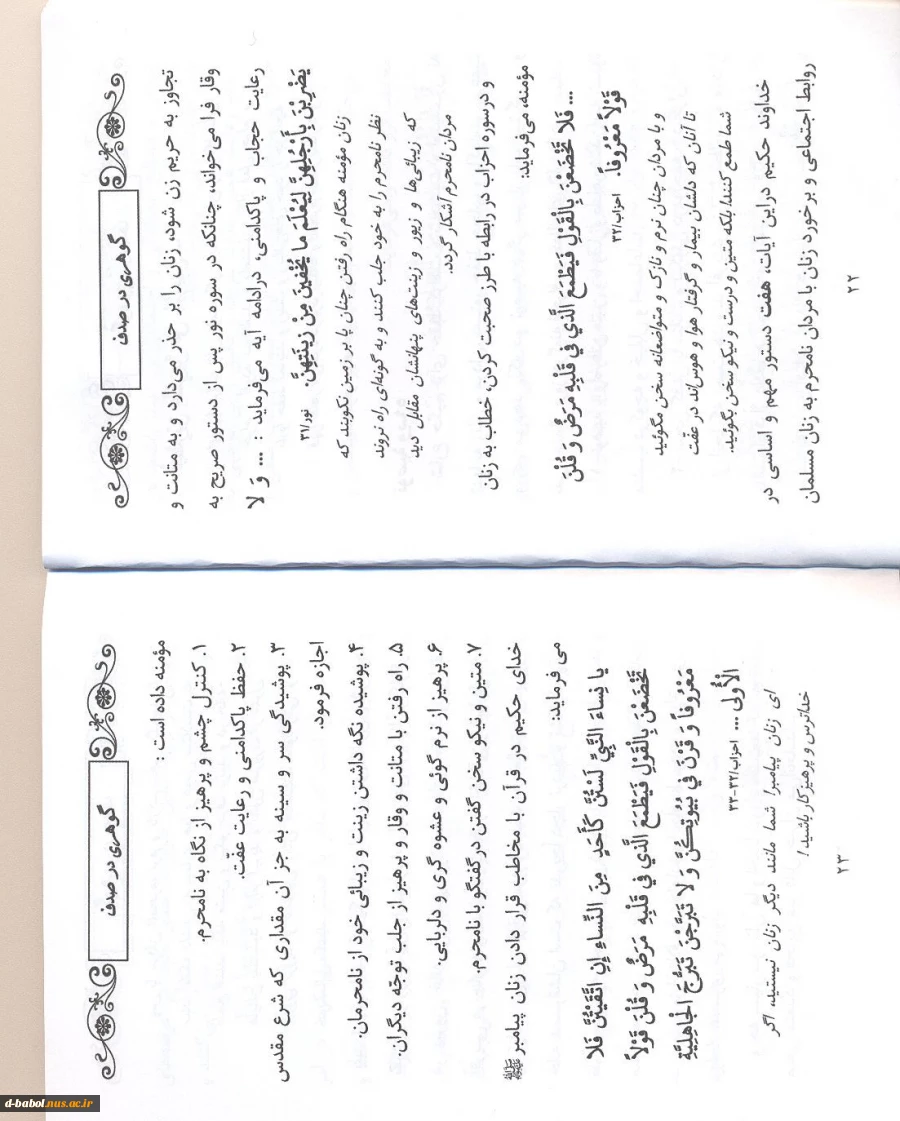 گوهری در صدف
تجاوز به حریم زن شود، زنان را بر حذر می‌دارد و به متانت و
وقار فرا می‌خواند، چنانکه در سوره نور پس از دستور صریح به
رعایت حجاب و پاکدامنی، درادامه آیه می‌فرماید : ... وَ لا
یَضْرِبْنَ بِأَرْجُلِهِنَّ لِیُعْلَمَ ما یُخْفِینَ مِنْ زِینَتِهِنَّ. نور/۳۱
زنان مؤمنه هنگام راه رفتن چنان پا بر زمین نکوبند که
نظر نامحرم را به خود جلب کنند و به گونه‌ای راه نروند
که زیبائی‌ها و زیور و زینت‌های پنهانشان مقابل دید
مردان نامحرم آشکار گردد.
و درسوره احزاب در رابطه با طرز صحبت کردن، خطاب به زنان
مؤمنه، می‌فرماید:
... فَلا تَخْضَعْنَ بِالْقَوْلِ فَیَطْمَعَ الَّذي في قَلْبِهِ مَرَضٌ وَ قُلْنَ
قَوْلاً مَعْرُوفاً. احزاب/۳۲
و با مردان چنان نرم و نازک و متواضعانه سخن مگوئید
تا آنان که دلشان بیمار و گرفتار هوا و هوس‌اند در عفّت
شما طمع کنند! بلکه متین و درست و نیکو سخن بگوئید.
خداوند حکیم دراین آیات، هفت دستور مهم و اساسی در
روابط اجتماعی و برخورد زنان با مردان نامحرم به زنان مسلمان
۲۲
گوهری در صدف
مؤمنه داده است :
۱. کنترل چشم و پرهیز از نگاه به نامحرم.
۲. حفظ پاکدامنی و رعایت عفّت.
۳. پوشیدگی سر و سینه به جز آن مقداری که شرع مقدس
اجازه فرمود.
۴. پوشیده نگه داشتن زینت و زیبائی خود از نامحرمان.
۵. راه رفتن با متانت و وقار و پرهیز از جلب توجّه دیگران.
۶. پرهیز از نرم گوئی و عشوه گری و دلربایی.
۷. متین و نیکو سخن گفتن درگفتگو با نامحرم.
خدای حکیم در قرآن با مخاطب قرار دادن زنان پیامبر ﷺ
می فرماید:
یا نِساءَ النَّبِيِّ لَسْتُنَّ کَأَحَدٍ مِنَ النِّساءِ إِنِ اتَّقَیْتُنَّ فَلا
تَخْضَعْنَ بِالْقَوْلِ فَیَطْمَعَ الَّذي في قَلْبِهِ مَرَضٌ وَ قُلْنَ قَوْلاً
مَعْرُوفاً وَ قَرْنَ في بُیُوتِکُنَّ وَ لا تَبَرَّجْنَ تَبَرُّجَ الْجاهِلِیَّةِ
الْأُولی ... احزاب/۳۲-۳۳
ای زنان پیامبر! شما مانند دیگر زنان نیستید، اگر
خداترس و پرهیزکار باشید!
۲۳
d-babol.nus.ac.ir